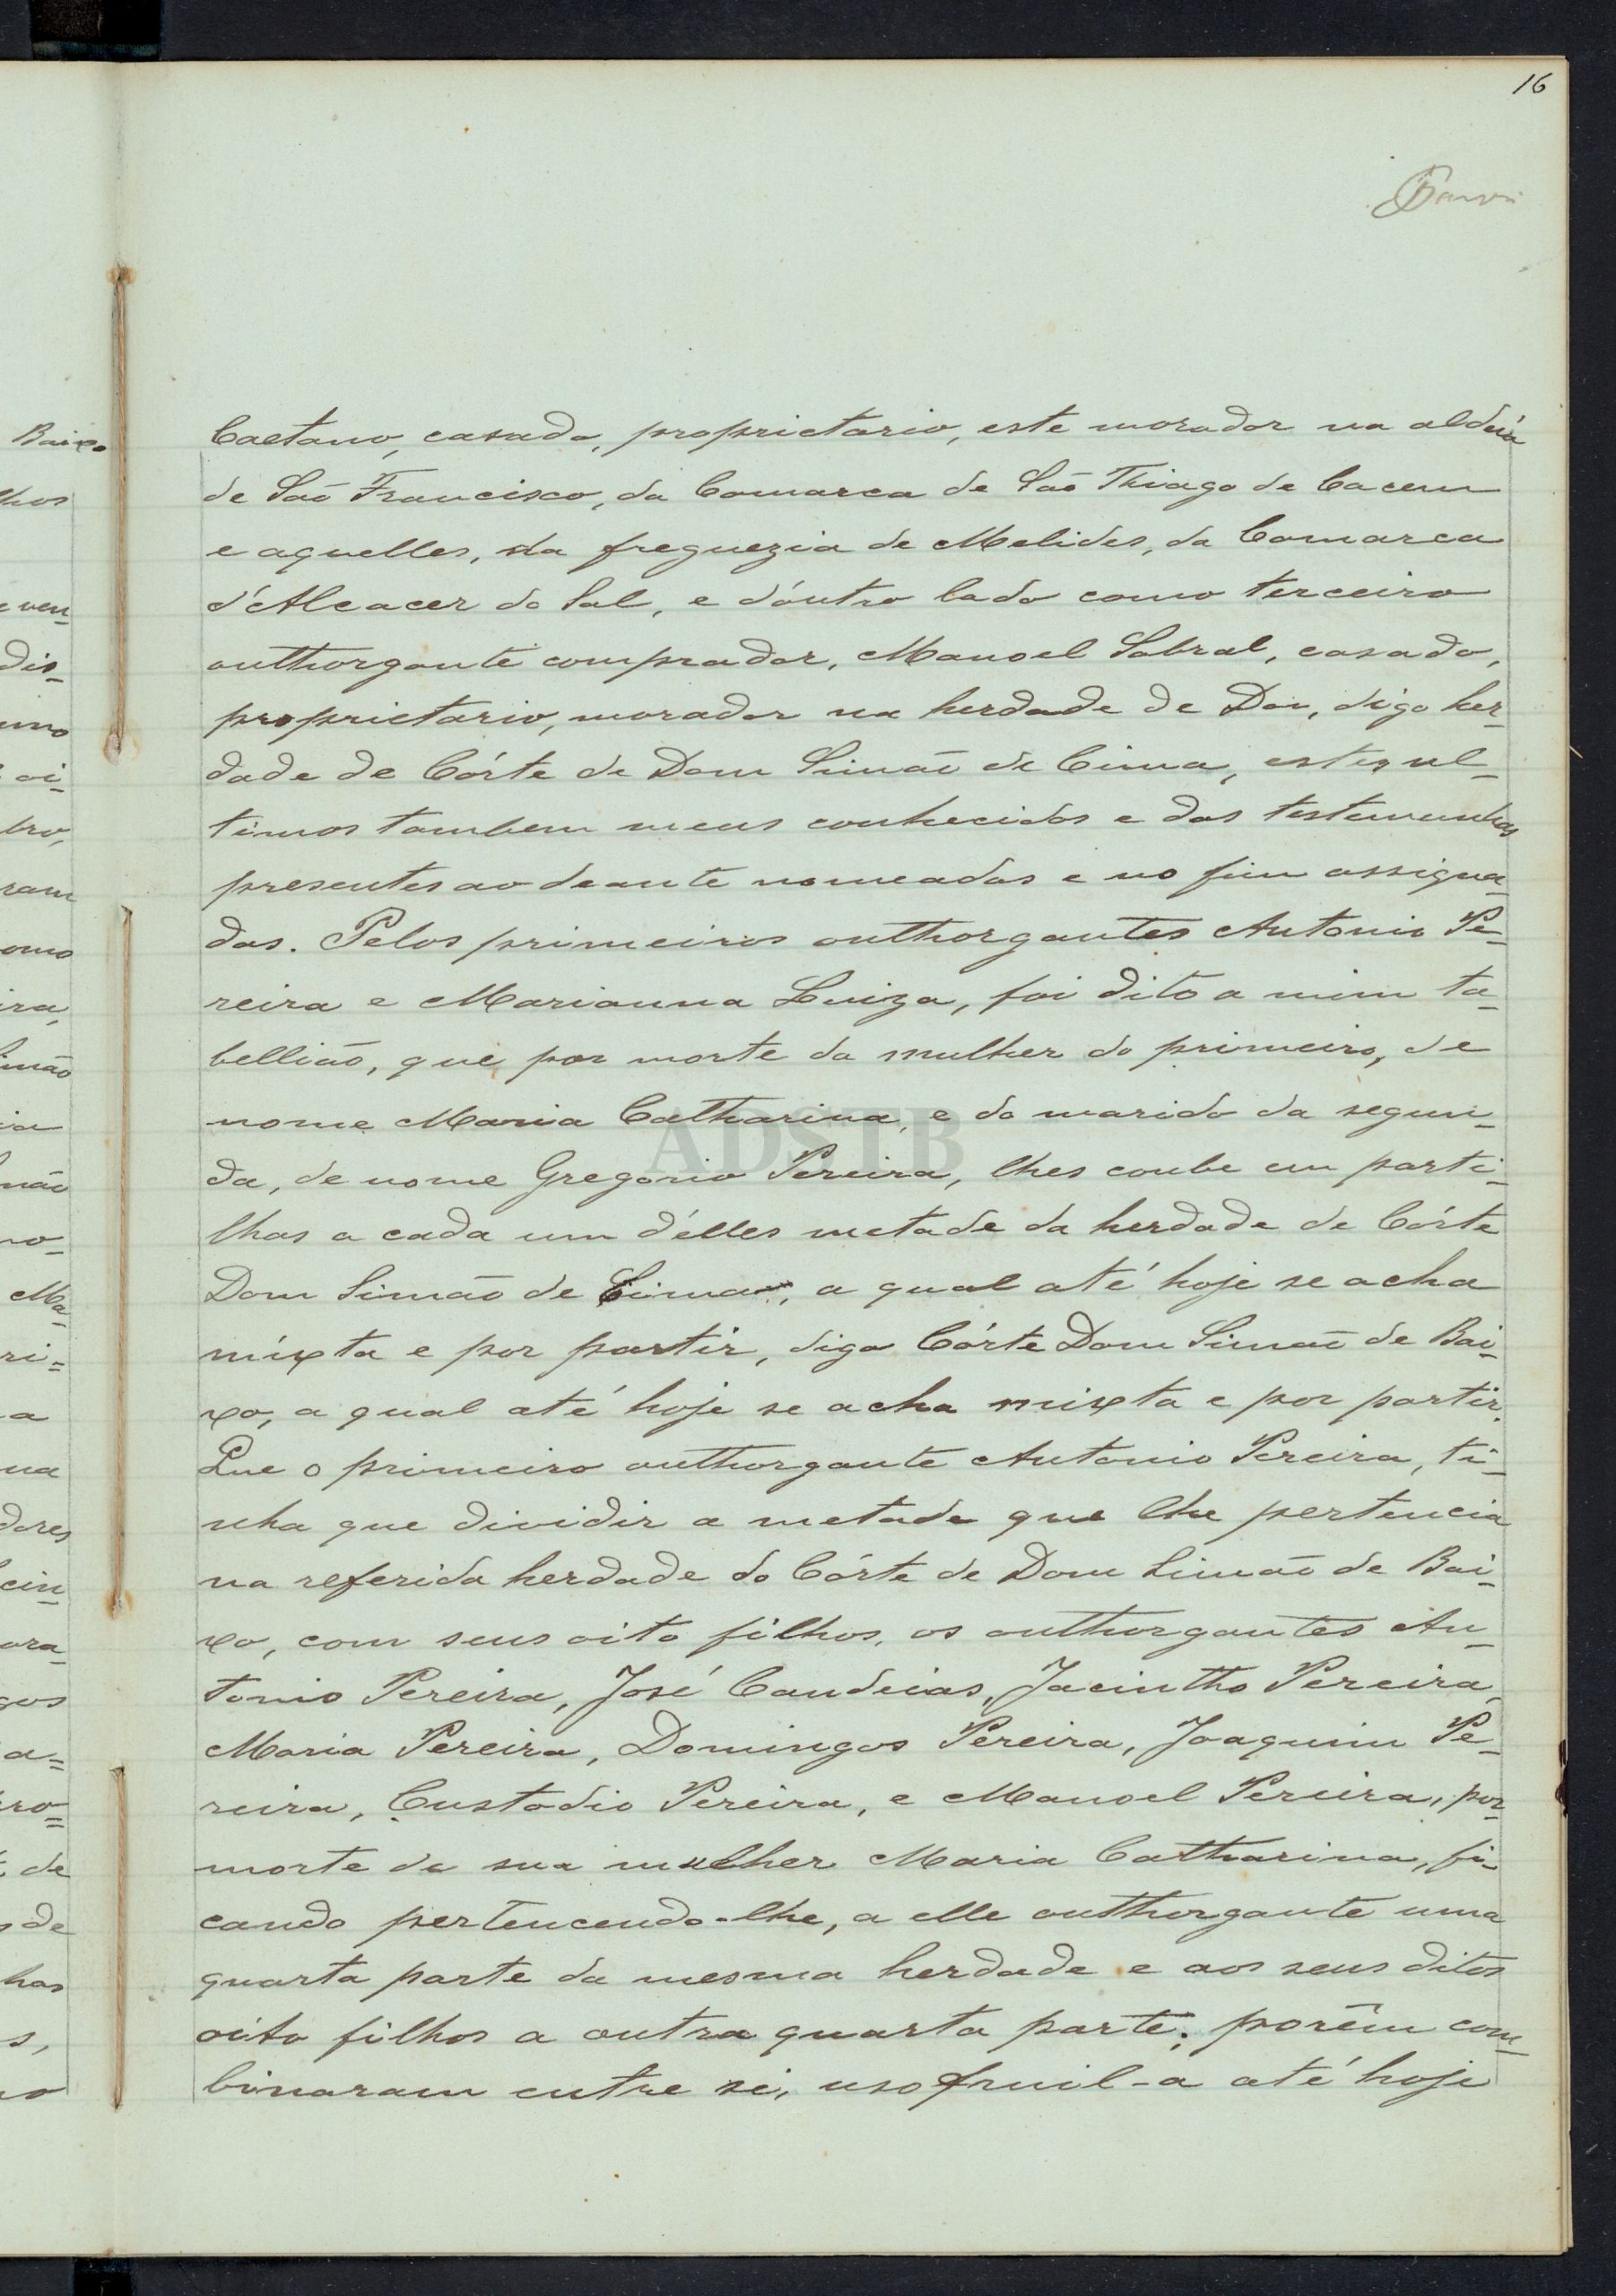 16
Caetano, casado, proprietario, este morador na aldeia
de São Francisco, da Comarca de São Thiago de Cacem
e aquelles, da freguezia de Melides, da Comarca
d'Alcacer do Sal, e d'outro lado como terceiro
outhorgante comprador, Manoel Sobral, casado,
proprietario, morador na herdade de Dom, digo her-
dade de Córte de Dom Simão de Cima, estes ul-
timos tambem meus conhecidos e das testemunhas
presentes ao deante nomeadas e no fim assigna-
das. Pelos primeiros outhorgantes Antonio Pe-
reira e Marianna Luiza, foi dito a mim ta-
bellião, que por morte da mulher do primeiro, de
nome Maria Catharina, e do marido da segun-
da, de nome Gregorio Pereira, lhes coube em parti-
lhas a cada um d'elles metade da herdade de Córte
Dom Simão de Cima, a qual até hoje se acha
mixta e por partir, digo Córte Dom Simão de Bai-
xo, a qual até hoje se acha mixta e por partir.
Que o primeiro outhorgante Antonio Pereira, ti-
nha que dividir a metade que lhe pertencia
na referida herdade do Córte de Dom Simão de Bai-
xo, com seus oito filhos, os outhorgantes An-
tonio Pereira, José Candeias, Jacintho Pereira,
Maria Pereira, Domingos Pereira, Joaquim Pe-
reira, Custodio Pereira, e Manoel Pereira, por
morte de sua mulher Maria Catharina, fi-
cando pertencendo-lhe, a elle outhorgante uma
quarta parte da mesma herdade e aos seus ditos
oito filhos a outra quarta parte; porêm com-
binaram entre si, usofruil-a até hoje
ADSTB